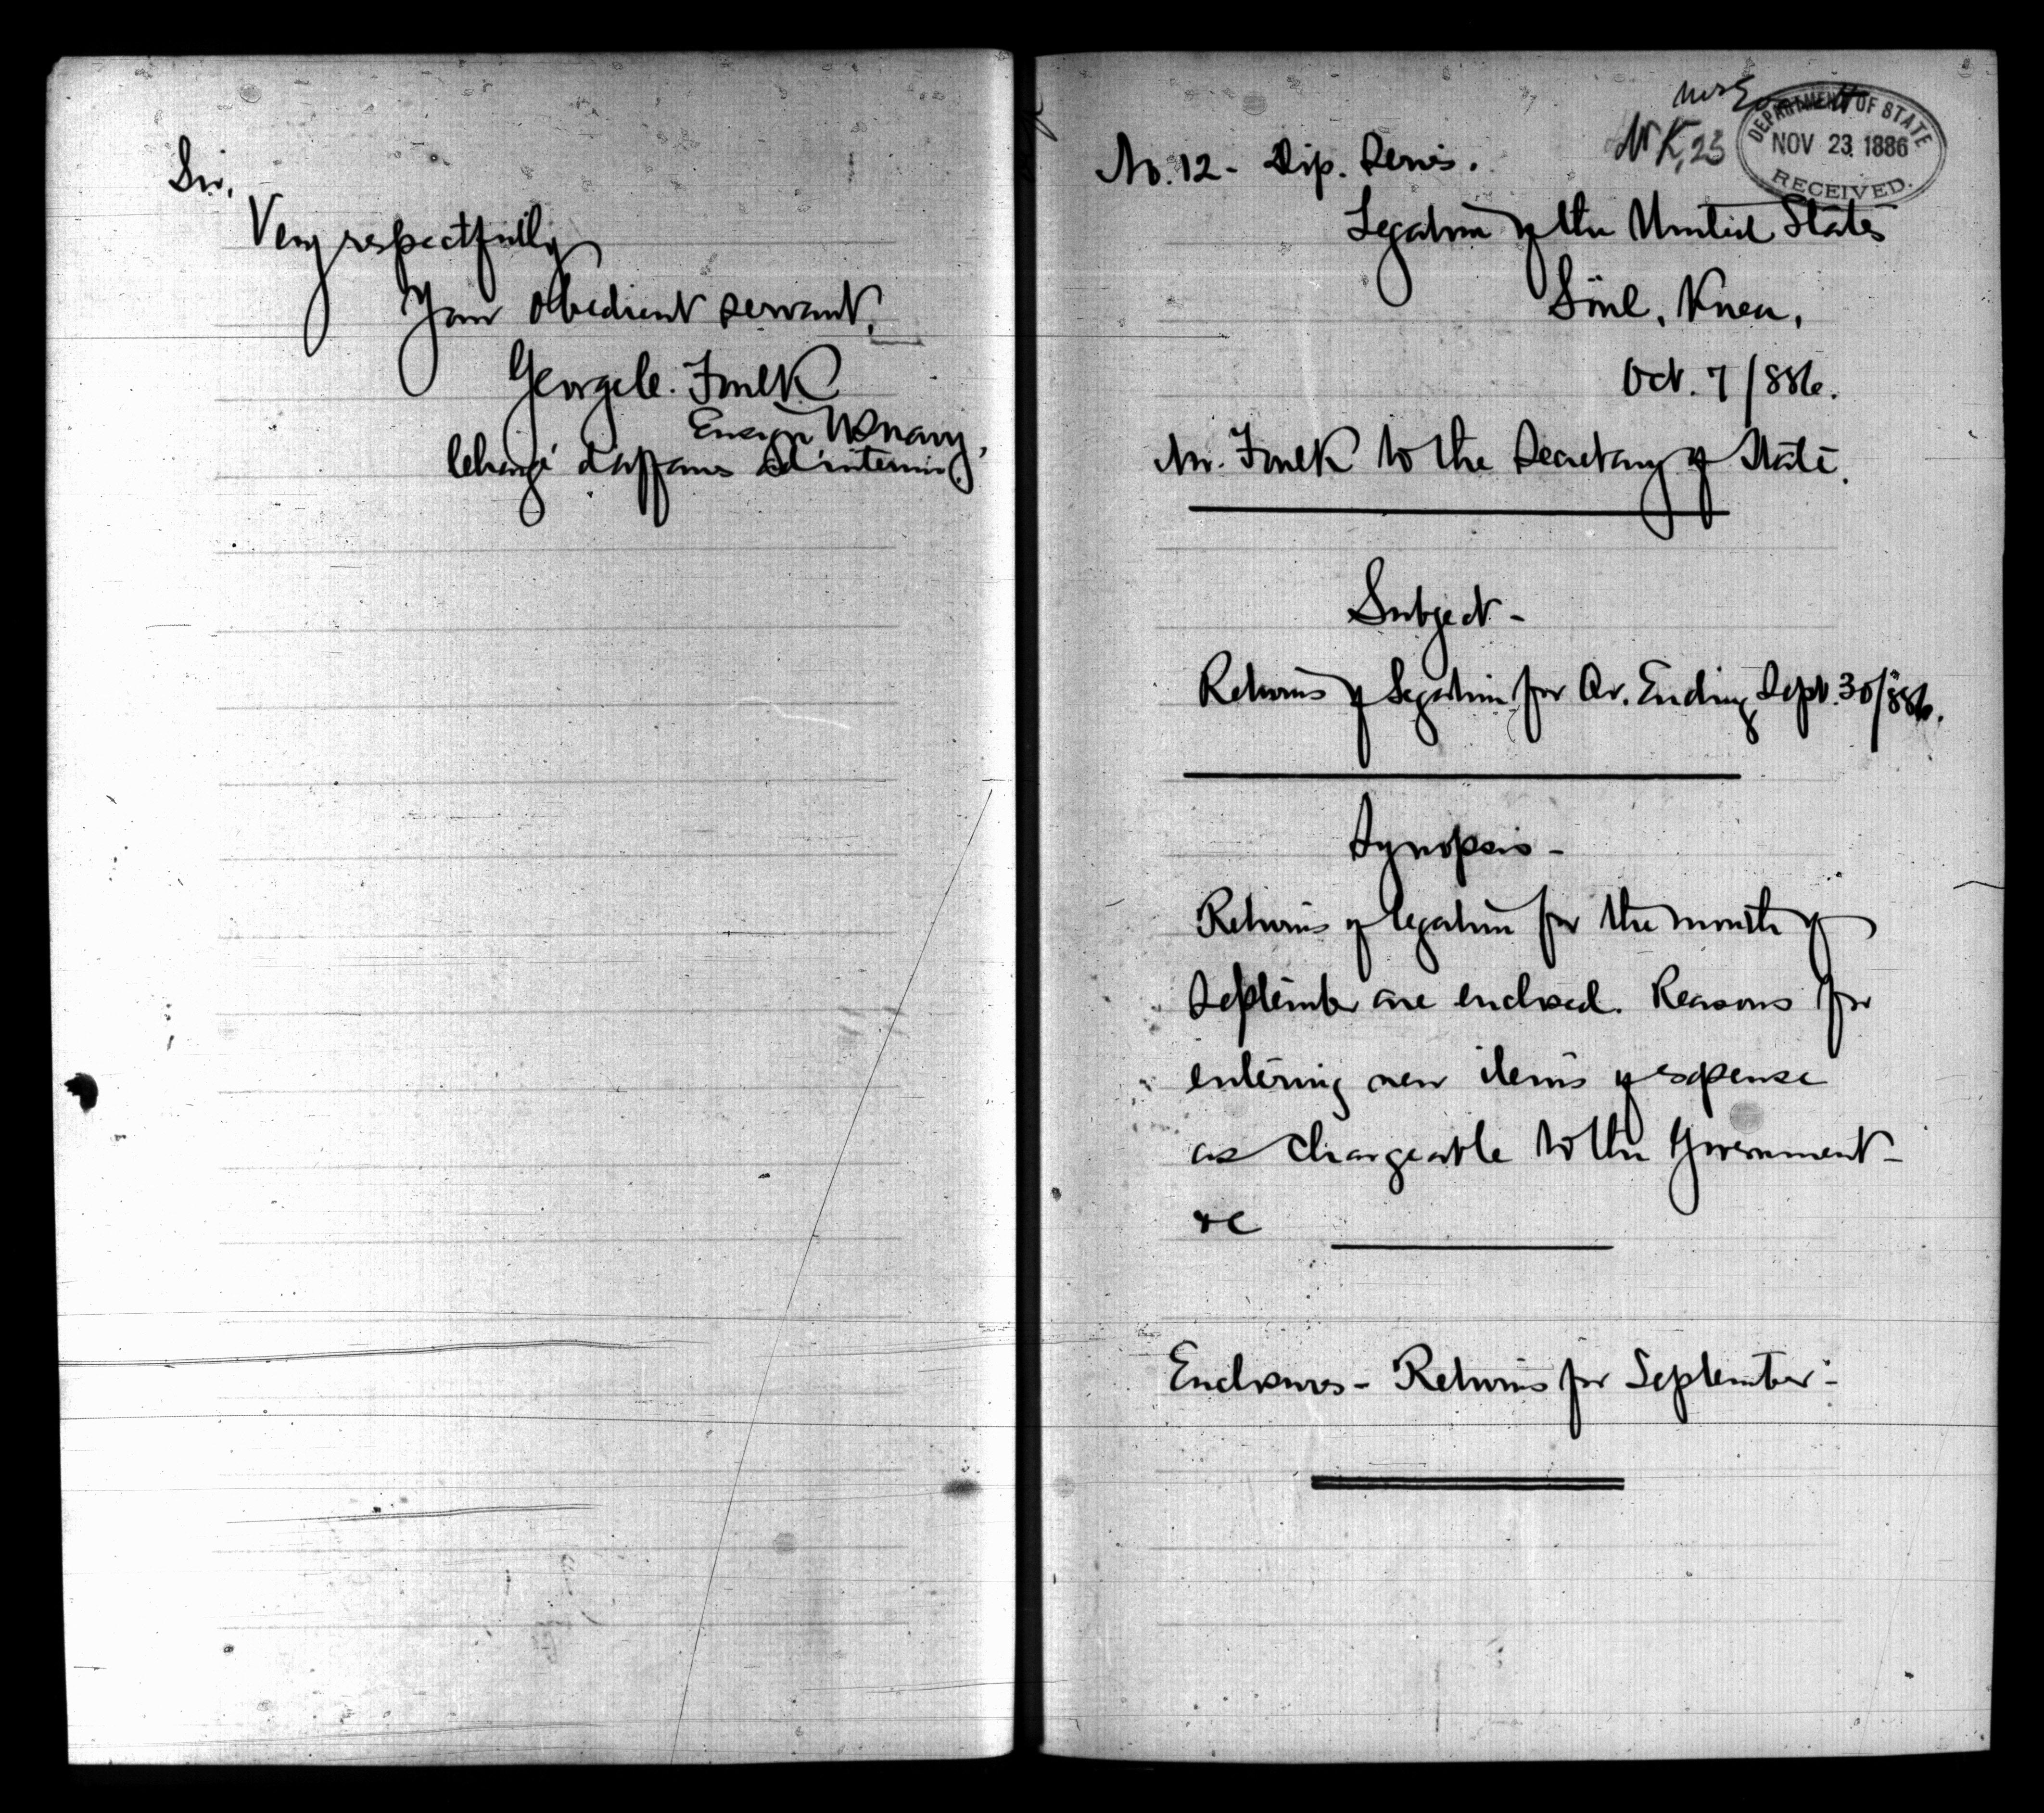 Sir,
Very respectfully
Your obedient servant,
George C. Foulk
Ensign US Navy,
Chargé d'affaires ad interim.
DEPARTMENT OF STATE
NOV 23 1886
RECEIVED.
No. 12 - Dip. Series.
Legation of the United States
Söul, Korea,
Oct. 7/886.
Mr. Foulk to the Secretary of State.
Subject -
Returns of Legation for Qr. Ending Sept. 30/886.
Synopsis -
Returns of legation for the month of
September are enclosed. Reasons for
entering new items of expense
as chargeable to the Government -
&c
Enclosures - Returns for September -